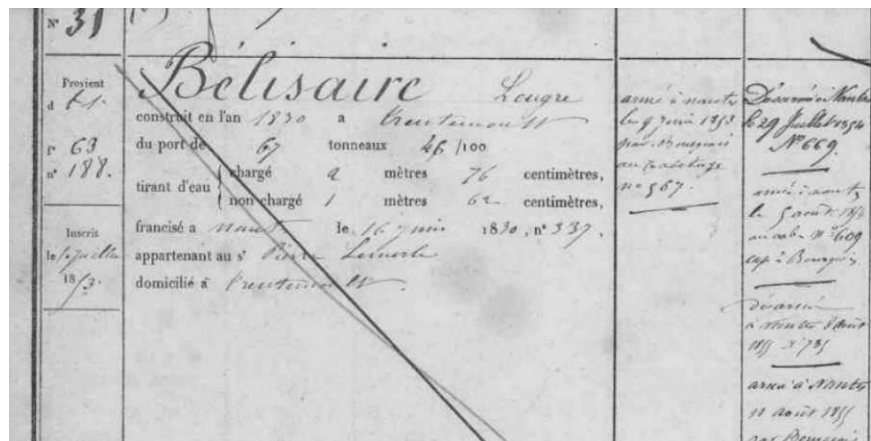 N° 31
Provient
d
f° 63
n° 188.
Inscrit
le juillet
1853.
Bélisaire Lougre
construit en l'an 1830 a Trentemoult
du port de 67 tonneaux 46 /100
tirant d'eau
chargé 2 mètres 76 centimètres,
non chargé 1 mètres 62 centimètres,
francisé a nantes le 16 juin 1830, n° 337.
appartenant au s' Pierre Lemerle
domicilié à Trentemoult
armé à nantes
le 9 1853
par Bourgeois
au cabotage
n° 567.
Desarmé à Nantes
le 29 Juillet 1854
N° 669.
armé à nantes
le 5 août
au cab. n° 609
cap. Bourgeois
désarmé
à nantes août
n° 735
armé à Nantes
11 août 1855
par Bourgeois